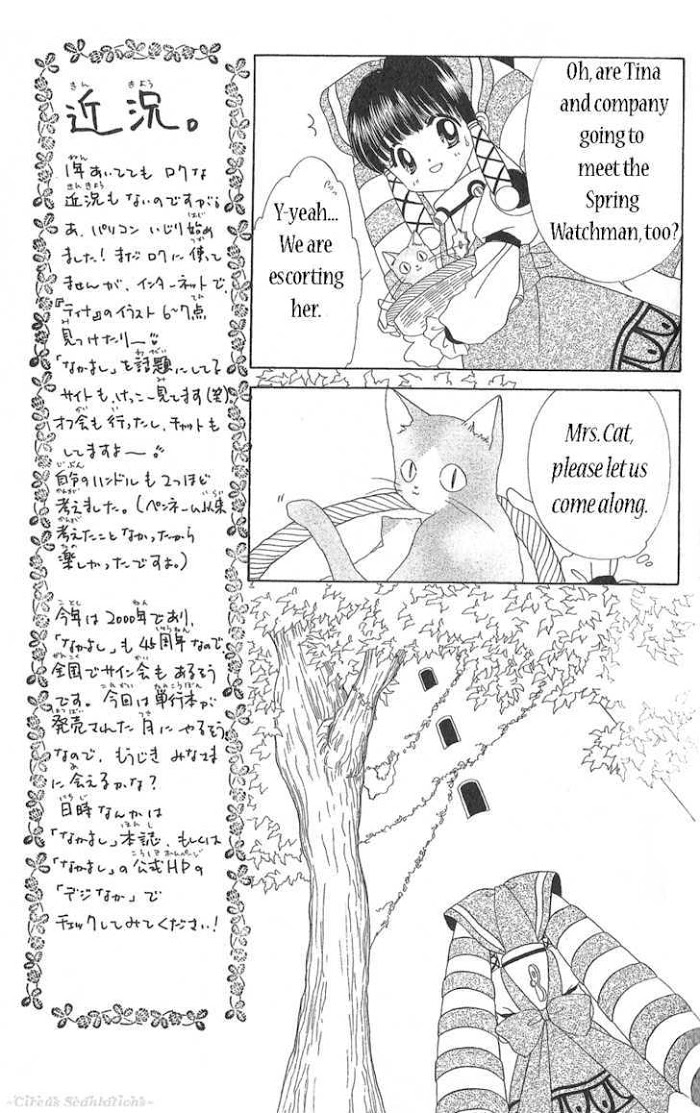 近況。
1年あいてても ロクな
近況もないのですが。
あ、パソコン いじり始め
ました! まだロクに使って
ませんが、インターネットで、
『ティナ』のイラスト 6〜7点
見つけたり〜
「なかよし」を話題にしてる
サイトも、けっこー見てます(笑)。
オフ会も行ったし、チャットも
してますよ〜
自分のハンドルも2つほど
考えました。(ペンネーム以来
考えたことなかったから
楽しかったですよ。)
今年は2000年であり、
「なかよし」も45周年なので、
全国でサイン会もあるそう
です。今回は単行本が
発売された月にやるそう
なので、もうじきみなさま
に会えるかな?
日時なんかは
「なかよし」本誌、もしくは
「なかよし」の公式HPの
「デジなか」で
チェックしてみてください!
Oh, are Tina
and company
going to
meet the
Spring
Watchman, too?
Y-yeah...
We are
escorting
her.
Mrs. Cat,
please let us
come along.